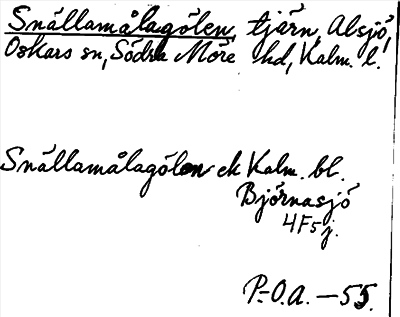 Snällamålagölen, tjärn, Alsjö,
Oskars sn, Södra Möre hd, Kalm. l.
Snällamålagölen ek Kalm. bl.
Björnasjö
4F5j.
P.-O.A. -55.